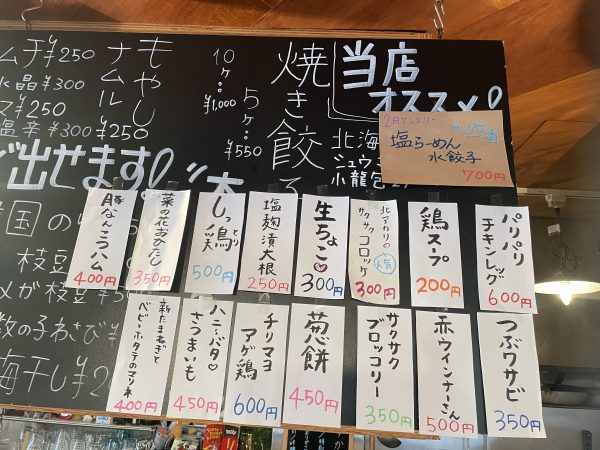 当店
オススメ!
焼き餃子
5ヶ… ¥550
10ヶ… ¥1,000
もやし
ナムル
¥250
ムチ¥250
水晶¥300
マ¥250
塩辛¥300
ぐ出せます!
北海
ジュウ
小龍包
2月マンスリー
サッポロ一番
塩らーめん
水餃子
700円
パリパリ
チキンレッグ
600円
鶏スープ
200円
北アカリの
サクサク
コロッケ
人気
300円
生ちょこ♡
300円
塩麹漬大根
250円
しっとり鶏
500円
菜の花おひたし
350円
豚なんこつハム
400円
つぶワサビ
350円
赤ウインナーさん
500円
サクサク
ブロッコリー
350円
葱餅
450円
チリマヨ
アゲ鶏
600円
ハニーバター♡
さつまいも
450円
新たまねぎと
ベビーホタテのマリネ
400円
国の
枝豆
メガ枝豆
数の子わさび
梅干し¥2